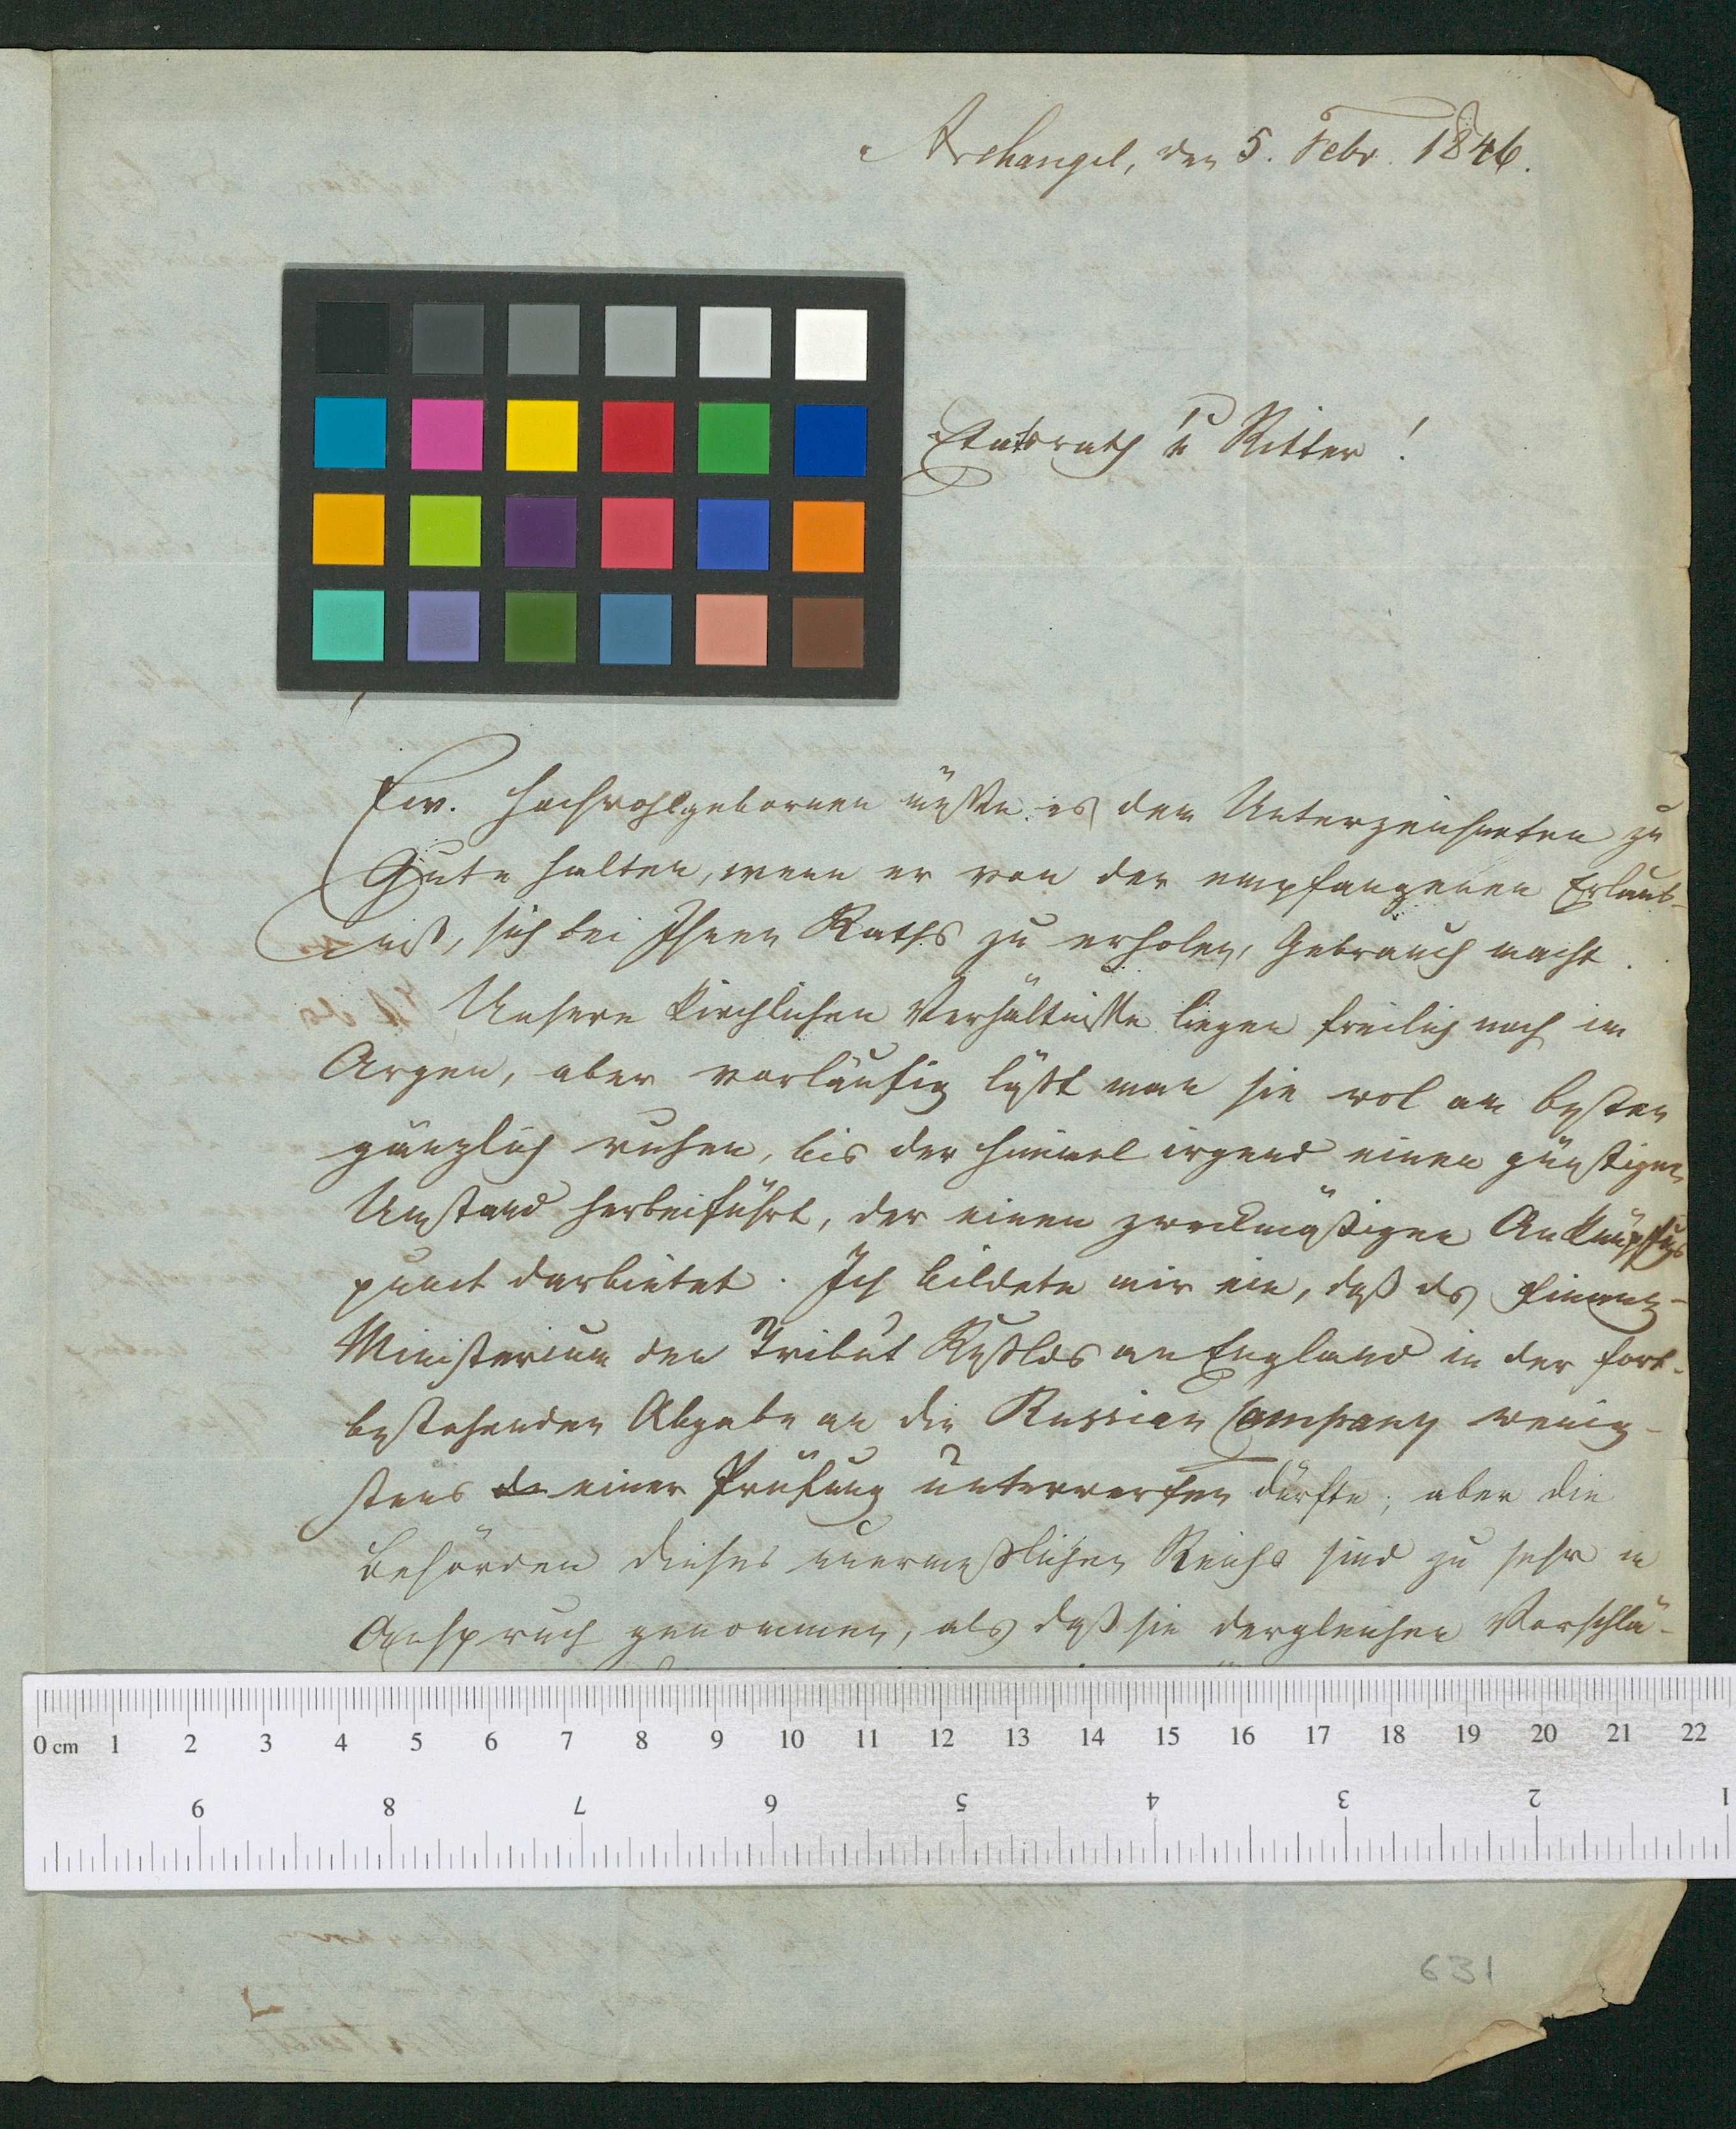 Archangel, den 5. Febr. 1846.
Etatsrath u Ritter!
Ew. Hochwohlgebornen müssen es dem Unterzeichneten zu
Gute halten, wenn er von der empfangenen Erlaub-
niß, sich bei Ihnen Raths zu erholen, Gebrauch macht.
Unsere kirchlichen Verhältnisse liegen freilich noch im
Argen, aber vorläufig läßt man sie wol am besten
gänzlich ruhen, bis der Himmel irgend einen günstigen
Umstand herbeiführt, der einen zweckmäßigen Anknüpfungs
punct darbietet. Ich bildete mir ein, daß das Finanz-
Ministerium den Tribut Rußlds an England in der fort-
bestehenden Abgabe an die Russian Company wenig-
stens einer Prüfung unterwerfen dürfte; aber die
Behörden dieses unermeßlichen Reichs sind zu sehr in
Anspruch genommen, als daß sie dergleichen Vorschlä-
0 cm 1 2 3 4 5 6 7 8 9 10 11 12 13 14 15 16 17 18 19 20 21 22
9 8 7 6 5 4 3 2 1
631